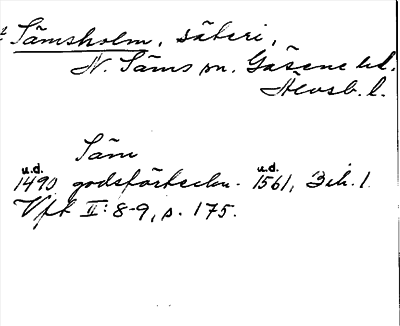 Sämsholm, säteri,
N. Säms sn. Gäsene hd.
Älvsb. l.
Säm
u.d. u.d.
1490 godsförteckn. 1561, Bih. 1
Vft II: 8-9, s. 175.